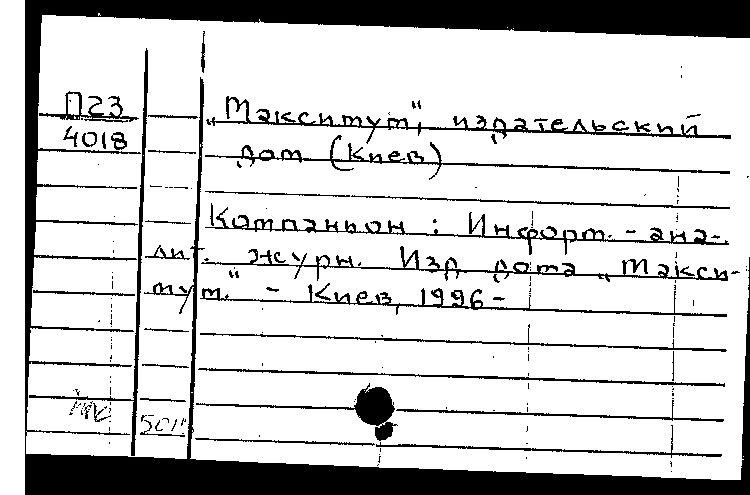 П23
4018
„Максимум“, издательский
дом (Киев)
Компаньон : Информ. - ана-
лит. журн. Изд. дома „Макси-
мум." - Киев, 1996 -